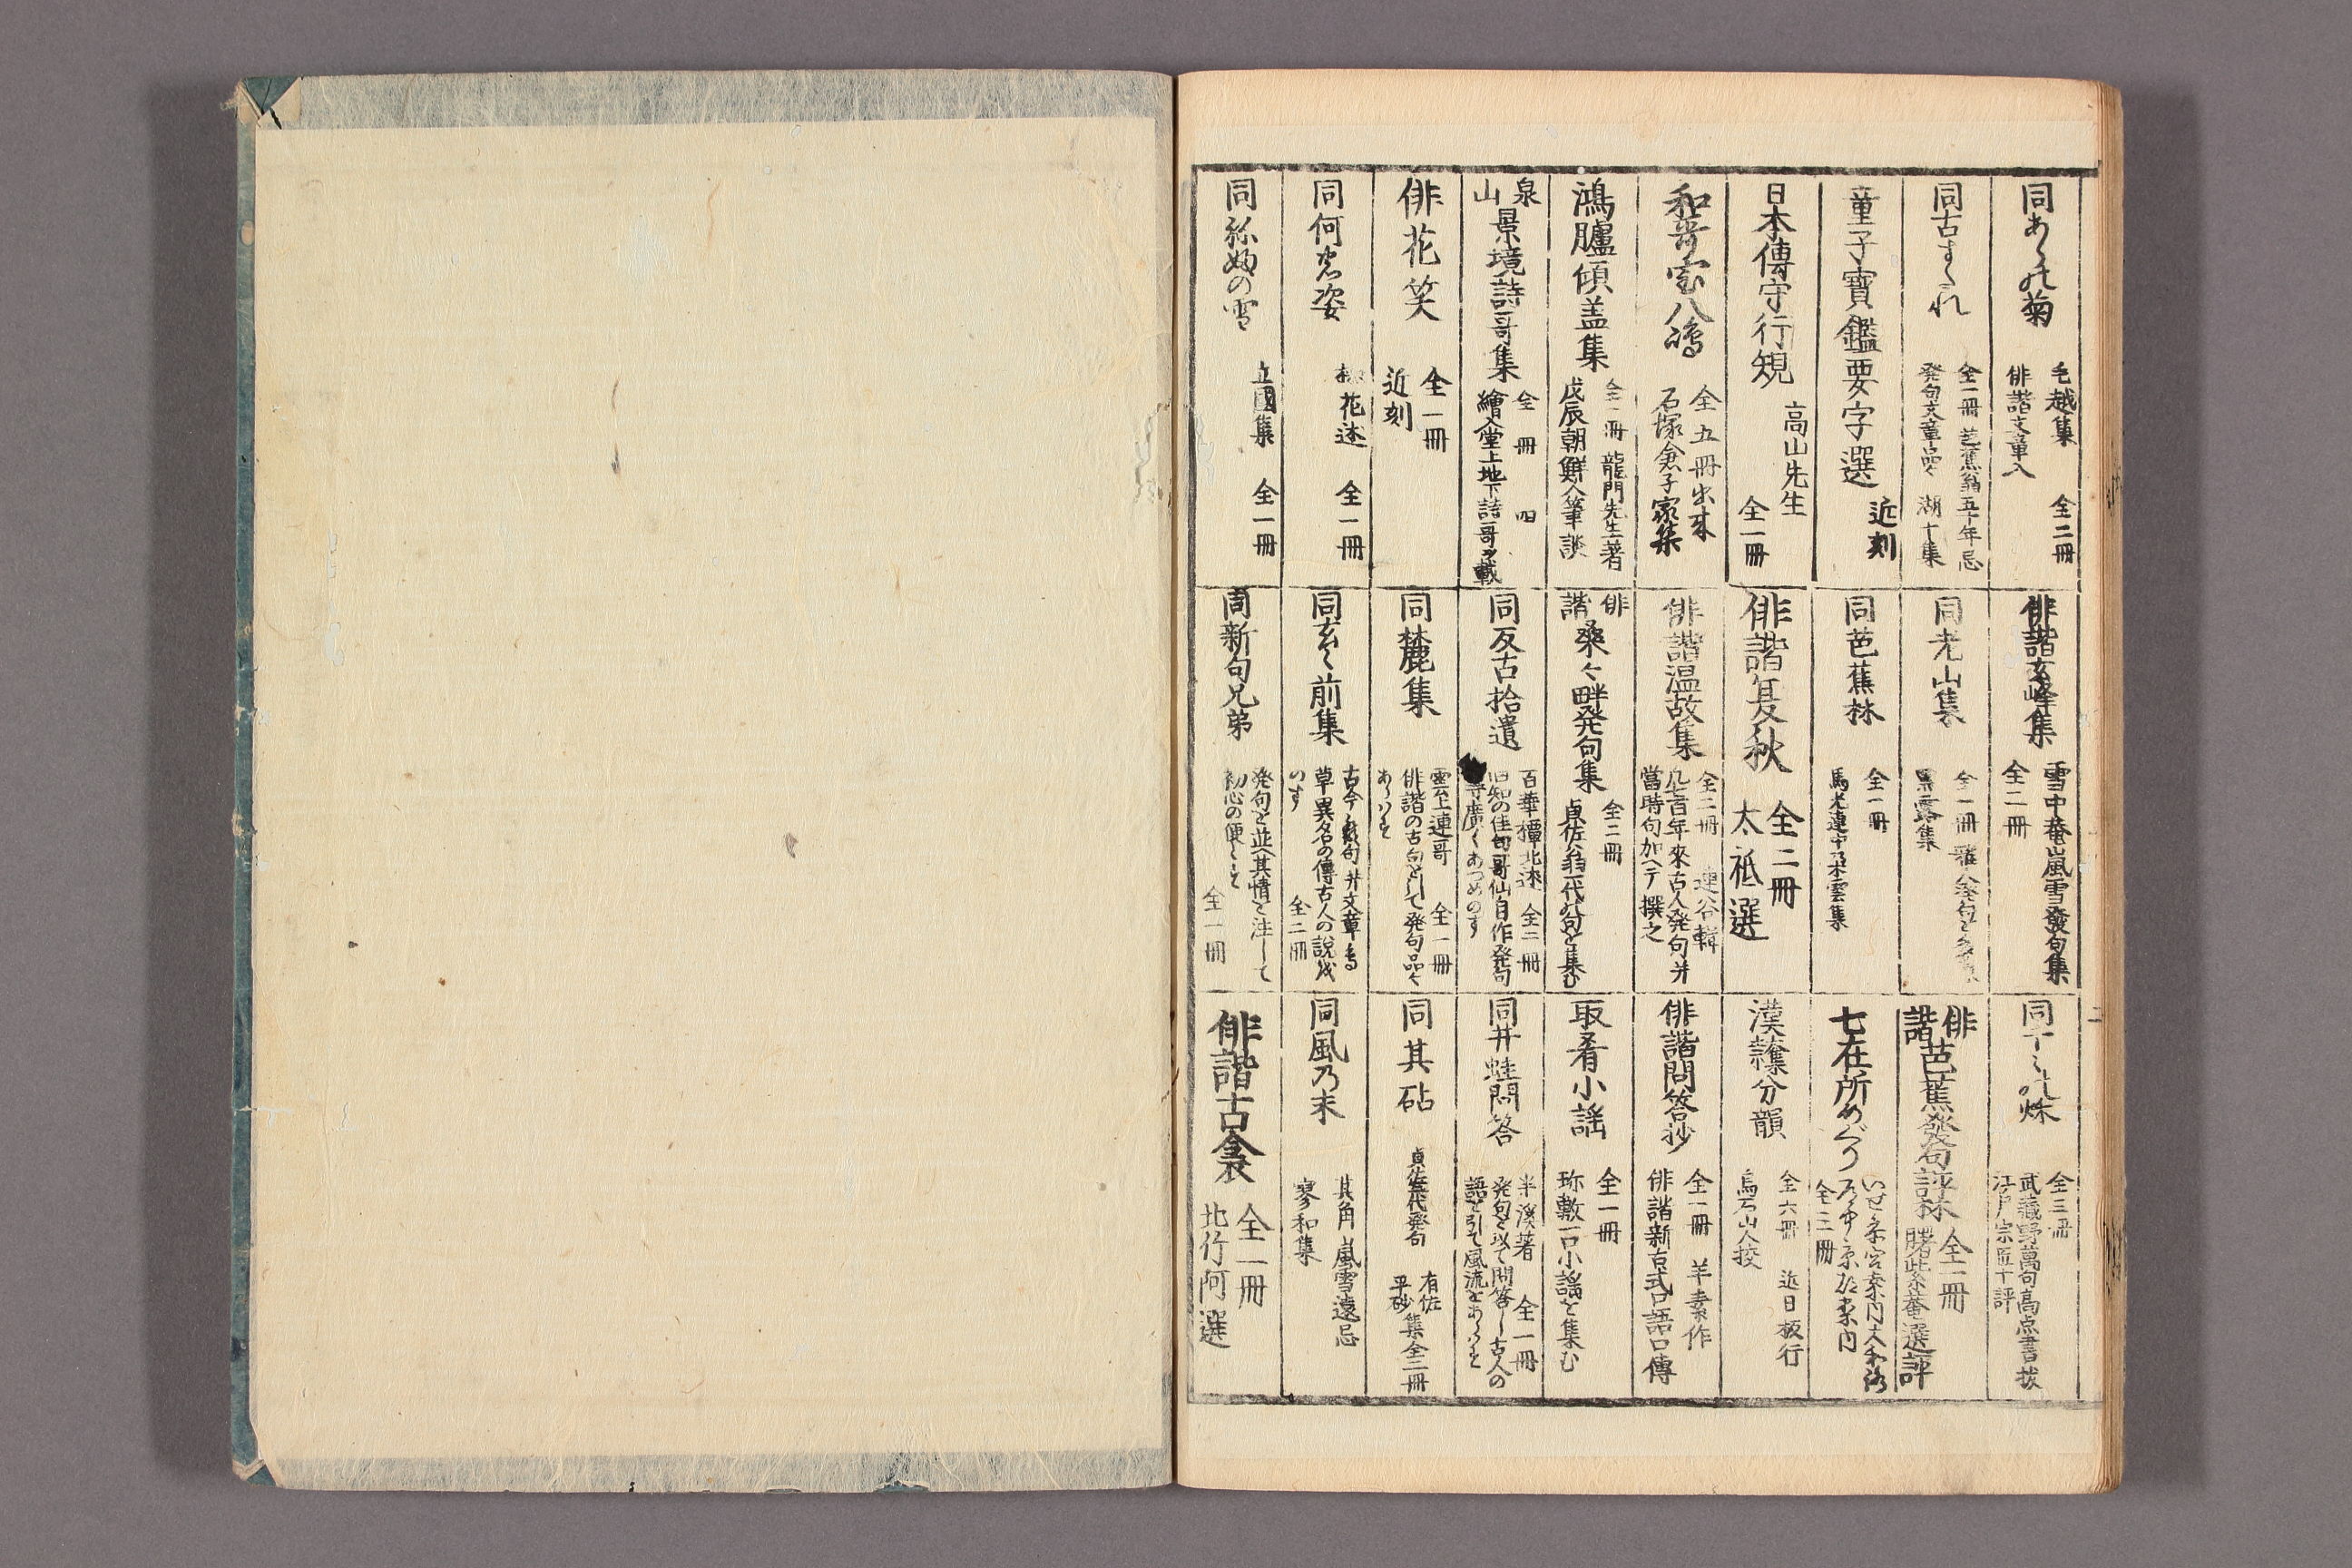 同あらの菊
毛越集 全二冊
俳諧文章入
同古すゝれ
全一冊 芭蕉翁五十年忌
発句文章品々 湖十集
童子寶鑑要字選
近刻
日本傳守行規
高山先生
全一冊
和哥宝八嶋
全五冊出来
石塚倉子家集
鴻臚傾盖集
全一冊 龍門先生著
戊辰朝鮮人筆談
泉山景境詩哥集
全 冊 四
繪入堂上地下詩哥ヲ載
俳花笑
全一冊
近刻
同何衣姿
花述 全一冊
同の雪
立國集 全一冊
俳諧玄峰集
雪中菴嵐雪發句集
全二冊
同老山集
全一冊
黒露集
同芭蕉林
全一冊
馬光連中乃朶雲集
俳諧夏秋
全二冊
太祇選
俳諧温故集
全二冊 連谷輯
凡百年來古人発句并
當時句加ヘテ撰之
俳諧桑々畔発句集
全二冊
貞佐翁一代の句を集む
同反古拾遺
百華檀北述 全二冊
旧知の佳句哥仙自作発句
等廣くあつめのす
同麓集
雲上連哥 全一冊
俳諧の古句をとして発句品々
あらハす
同玄々前集
古今発句并文章
草異名の傳古人の説を
のす 全二冊
同新句兄弟
発句を並へ其情を注して
初心の便とす 全一冊
同十の秌
全三冊
武藏野萬句高点書抜
江戸宗匠十評
俳諧芭蕉發句評林
全一冊
曙紫菴選評
七在所めぐり
いせ参宮案内大和路
京都案内
全三冊
漢隷分韻
全六冊 近日板行
烏石山人挍
俳諧問答抄
全一冊 羊素作
俳諧新古式口語口傳
取肴小謡
全一冊
珎敷一口小謡を集む
同井蛙問答
半溪著 全一冊
発句を以て問答し古人の
語を引て風流をあらハす
同其砧
貞佐一代発句
有佐
平砂 集全二冊
同風乃末
其角嵐雪遠忌
寥和集
俳諧古今衾
全一冊
北竹阿選